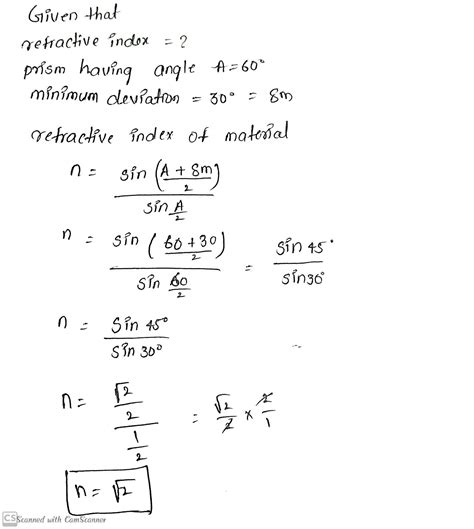 Given that
refractive index = ?
prism having angle A = 60°
minimum deviation = 30° = δm
refractive index of material
n = sin (A + δm / 2) / sin A/2
n = sin (60 + 30 / 2) / sin 60/2 = sin 45° / sin 30°
n = sin 45° / sin 30°
n = √2/2 / 1/2 = √2/2 × 2/1
n = √2
CS Scanned with CamScanner